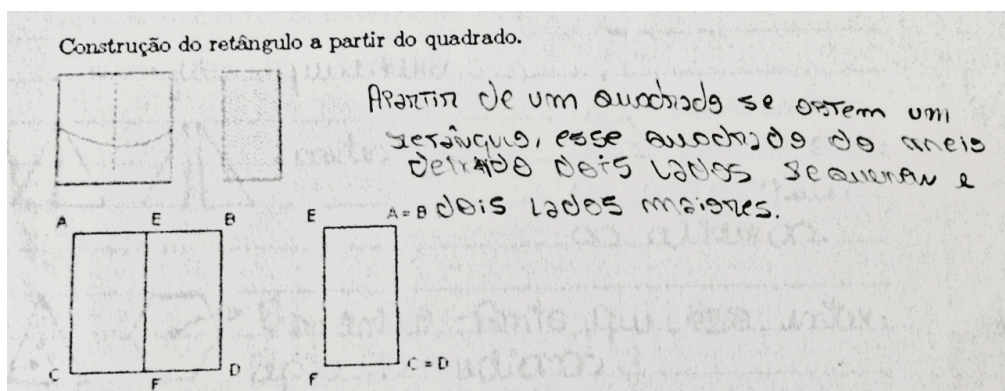 Construção do retângulo a partir do quadrado.
APartir de um quadrado se obtem um
retângulo, esse quadrado do meio
deixado dois lados Sequenau e
dois lados maiores.
A E B E A = B
C F D F C = D